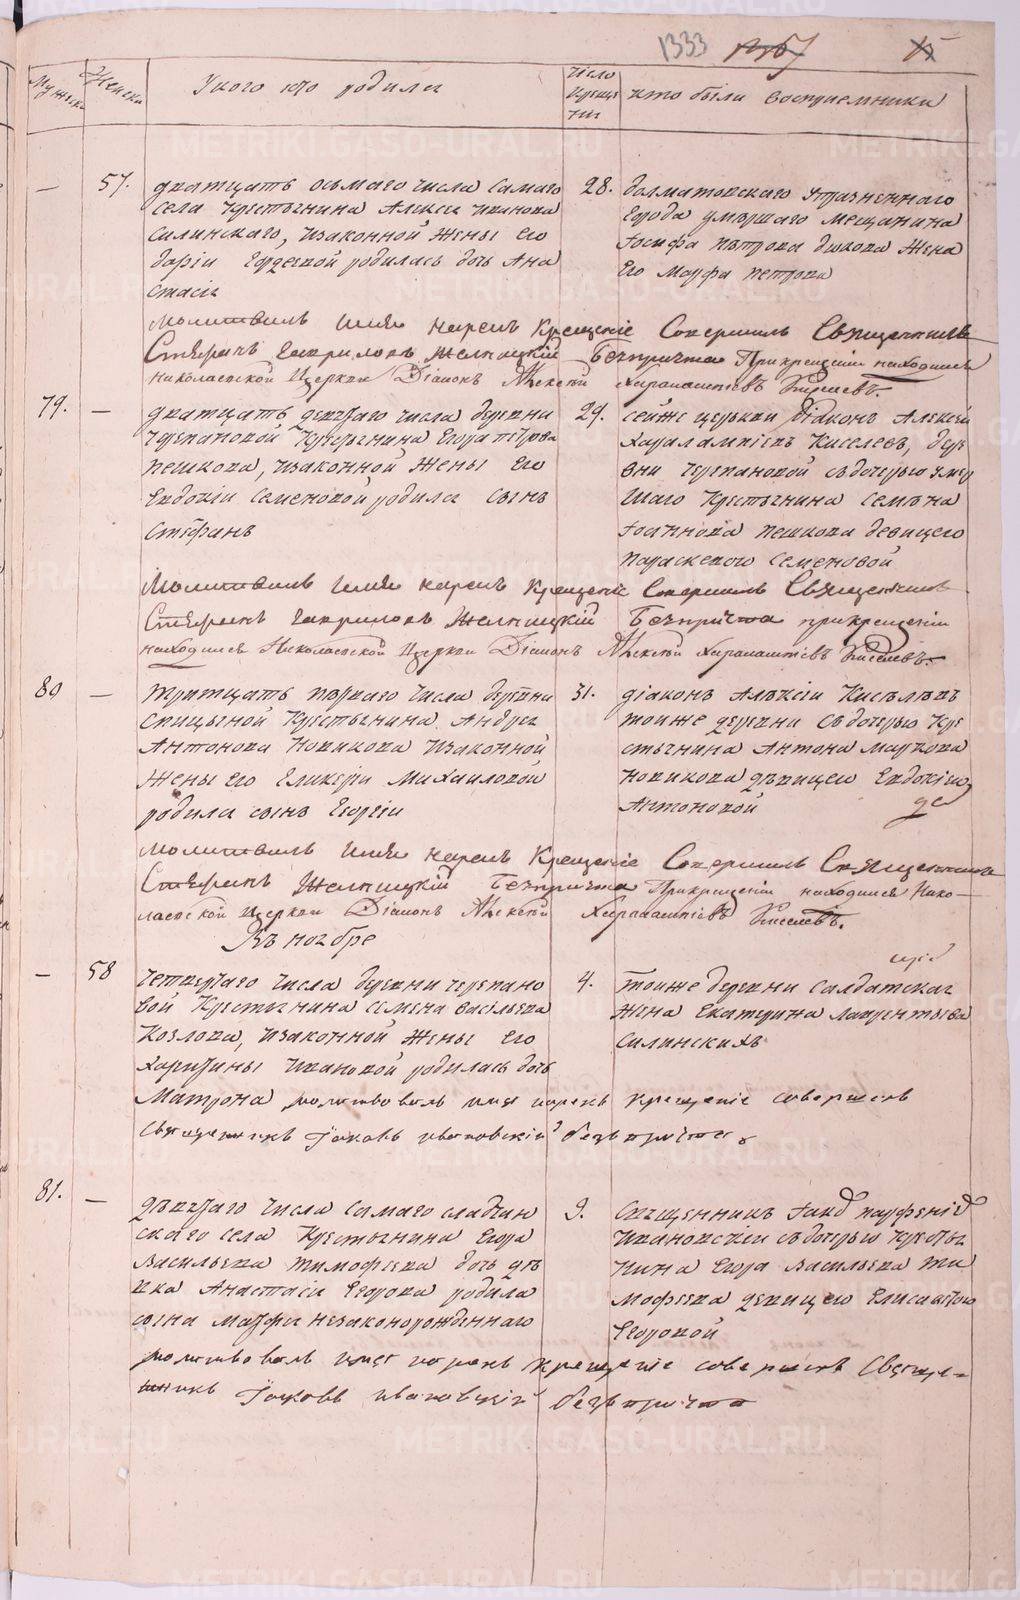 1333
Мужеска
Женска
У кого кто родился
Число
крещения
кто были восприемники
57.
дватцать осьмаго числа самаго
села крестьянина Алексея Иванова
Силинскаго, изаконной жены его
Дарьи Гордеевой родилась дочь Ана
стасія
28.
Далматовскаго упразненнаго
города умершаго мещанина
Іосифа Петрова жена
его Марфа Петрова
молитвовалъ имя нарекъ крещеніе совершилъ Священникъ
Стефанъ Гавриловъ безпричта при крещеніи находился
Николаевской церкви Діаконъ Алексей Харалампіевъ Киселевъ.
79. —
дватцать девятаго числа деревни
Черепановой крестьянина Егора Петрова
Пешкова, изаконной жены его
Евдокіи Семеновой родился сынъ
Стефанъ
29.
сейже церькви діаконъ Алексей
Харалампіевъ Киселевъ, дере
вни Черепановой съ дочерью умер
шаго крестьянина Семена
Іоаннова Пешкова девицею
Параскевою Семеновой
Молитвовалъ имя нарекъ крещеніе совершилъ Священникъ
Стефанъ Гавриловъ безпричта при крещеніи
находился Николаевской церкви Діаконъ Алексей Харалампіевъ Киселевъ.
80 —
тритцать перваго числа деревни
Спицыной крестьянина Андрея
Антонова Новикова изаконной
жены его Гликеріи Михаиловой
родился сынъ Георгіи
31.
діаконъ Алексіи Киселевъ
тоиже деревни съ дочерью кре
стьянина Антона Маркова
Новикова девицею Евдокіею
Антоновой
молитвовалъ имя нарекъ крещеніе совершилъ Священникъ
Стефанъ безпричта при крещеніи находился Нико-
лаевской церкви Діаконъ Алексей Харалампіевъ Киселевъ.
Въ ноябре
— 58
четвертаго числа деревни Черепано
вой крестьянина Семена Васильева
Козлова, изаконной жены его
Харитины Ивановой родилась дочь
Матрона молитвовалъ имя нарекъ крещеніе совершилъ
священникъ Іаковъ Ивановскій безъ причта
4.
тоиже деревни салдатская
жена Екатерина Лаврентьева
Силинскихъ
81. —
девятаго числа самаго Сладчан
скаго села крестьянина Егора
Васильева Тимофеева дочь де
вка Анастасія Егорова родила
сына Марфы незаконорожденнаго
9.
Священникъ Іаковъ Парфеніевъ
Ивановскіи съ дочерью крестья
нина Егора Васильева Ти
мофеева девицею Елисаветою
Егоровой
молитвовалъ имя нарекъ крещеніе совершилъ Священ-
никъ Іаковъ Ивановскій безъ причта
METRIKI.GASO-URAL.RU